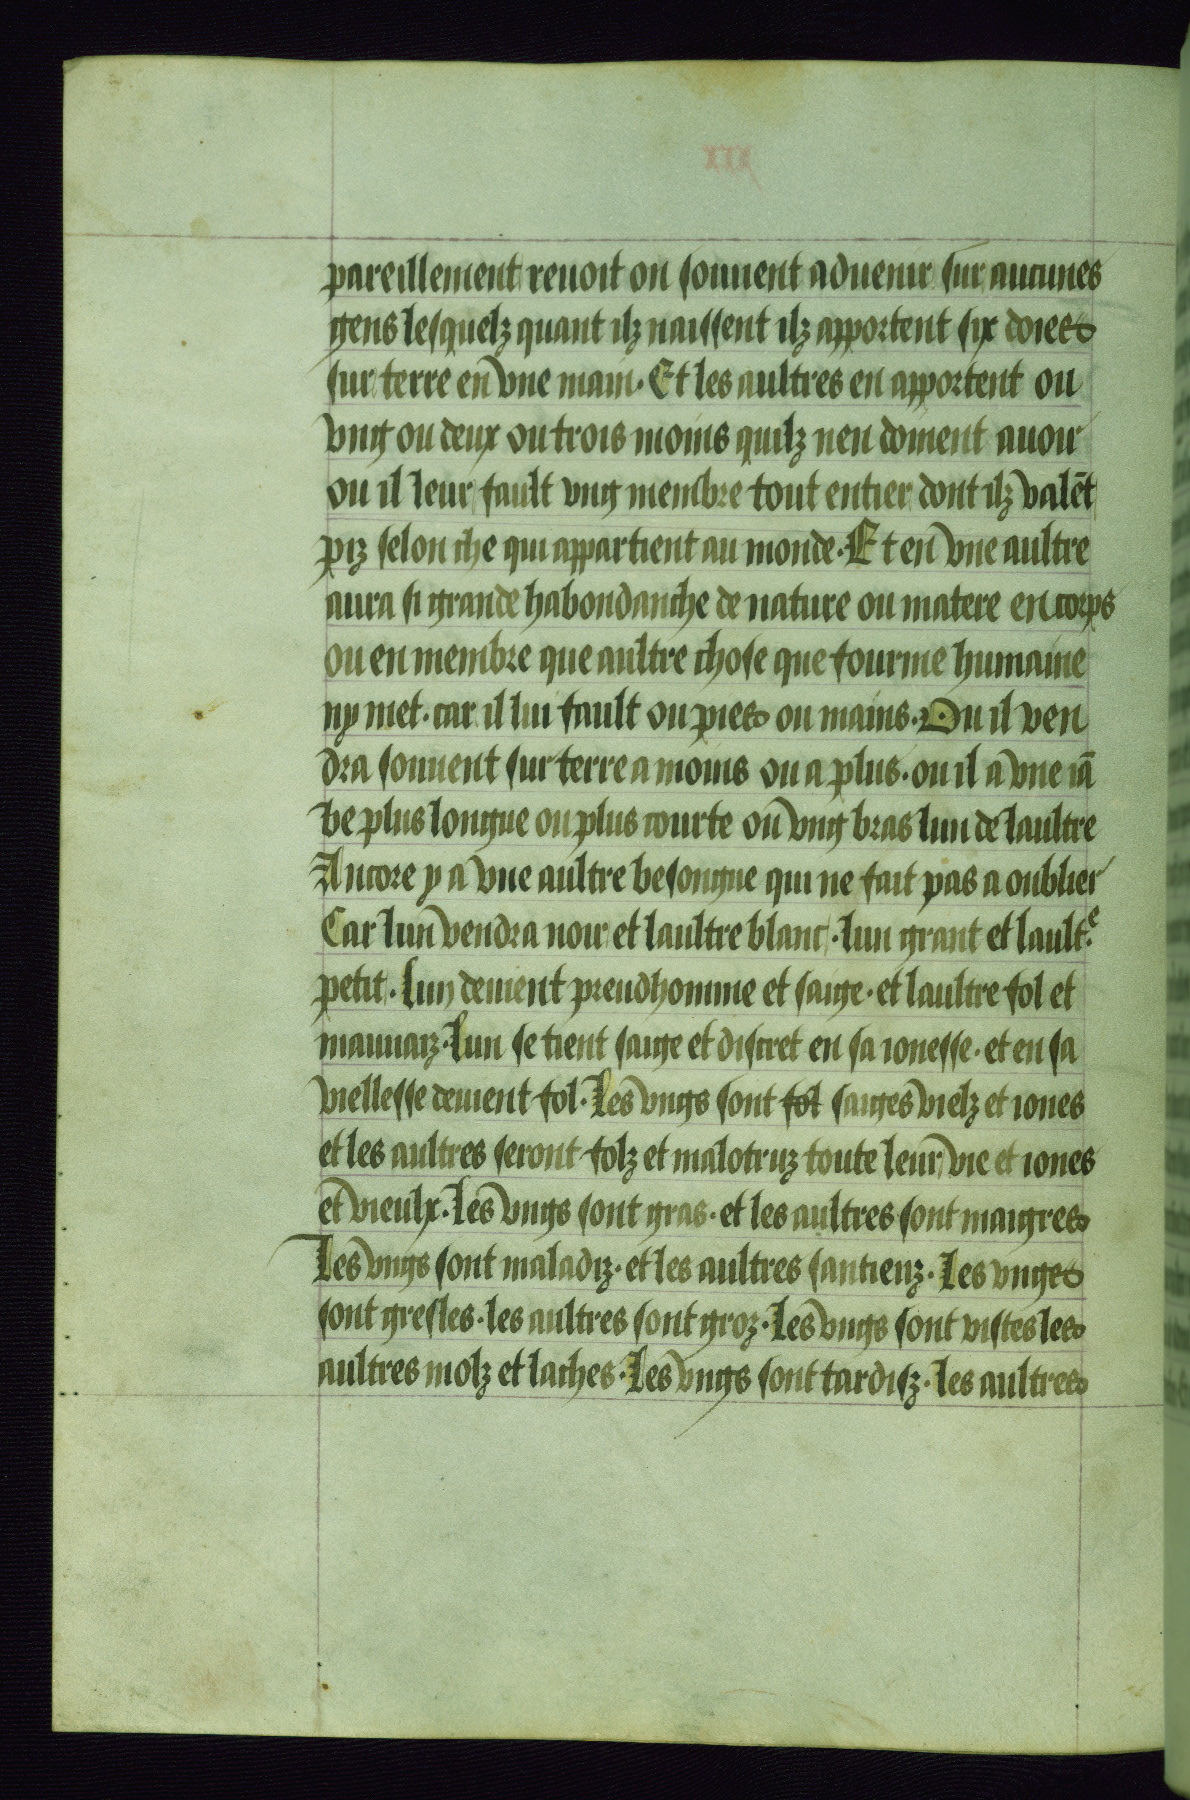 pareillement reuoit on souuent aduenir sur aucunes
gens lesquelz quant ilz naissent ilz apportent six doies
sur terre en vne main. Et les aultres en apportent ou
vng ou deux ou trois moins quilz nen doiuent auoir
ou il leur fault vng membre tout entier dont ilz valēt
piz selon che qui appartient au monde. Et en vne aultre
aura si grande habondanche de nature ou matere en corps
ou en membre que aultre chose que fourme humaine
ny met. car il lui fault ou pies ou mains. Ou il ven
dra souuent sur terre a moins ou a plus. ou il a vne iā
be plus longue ou plus courte ou vng bras lun de laultre
Ancore y a vne aultre besongue qui ne fait pas a oublier
Car lun vendra noir et laultre blanc. lun grant et lault.e
petit. Lun deuient preudhomme et saige. et laultre fol et
mauuaiz. Lun se tient saige et discret en sa ionesse. et en sa
viellesse deuient fol. Les vngs sont fol saiges vielz et iones
et les aultres seront folz et malotruz toute leur vie et iones
et vieulx. Les vngs sont gras. et les aultres sont maigres
Les vngs sont maladiz. et les aultres santieuz. Les vnges
sont gresles. les aultres sont groz. Les vngs sont vistes les
aultres molz et laches. Les vngs sont tardisz. les aultres